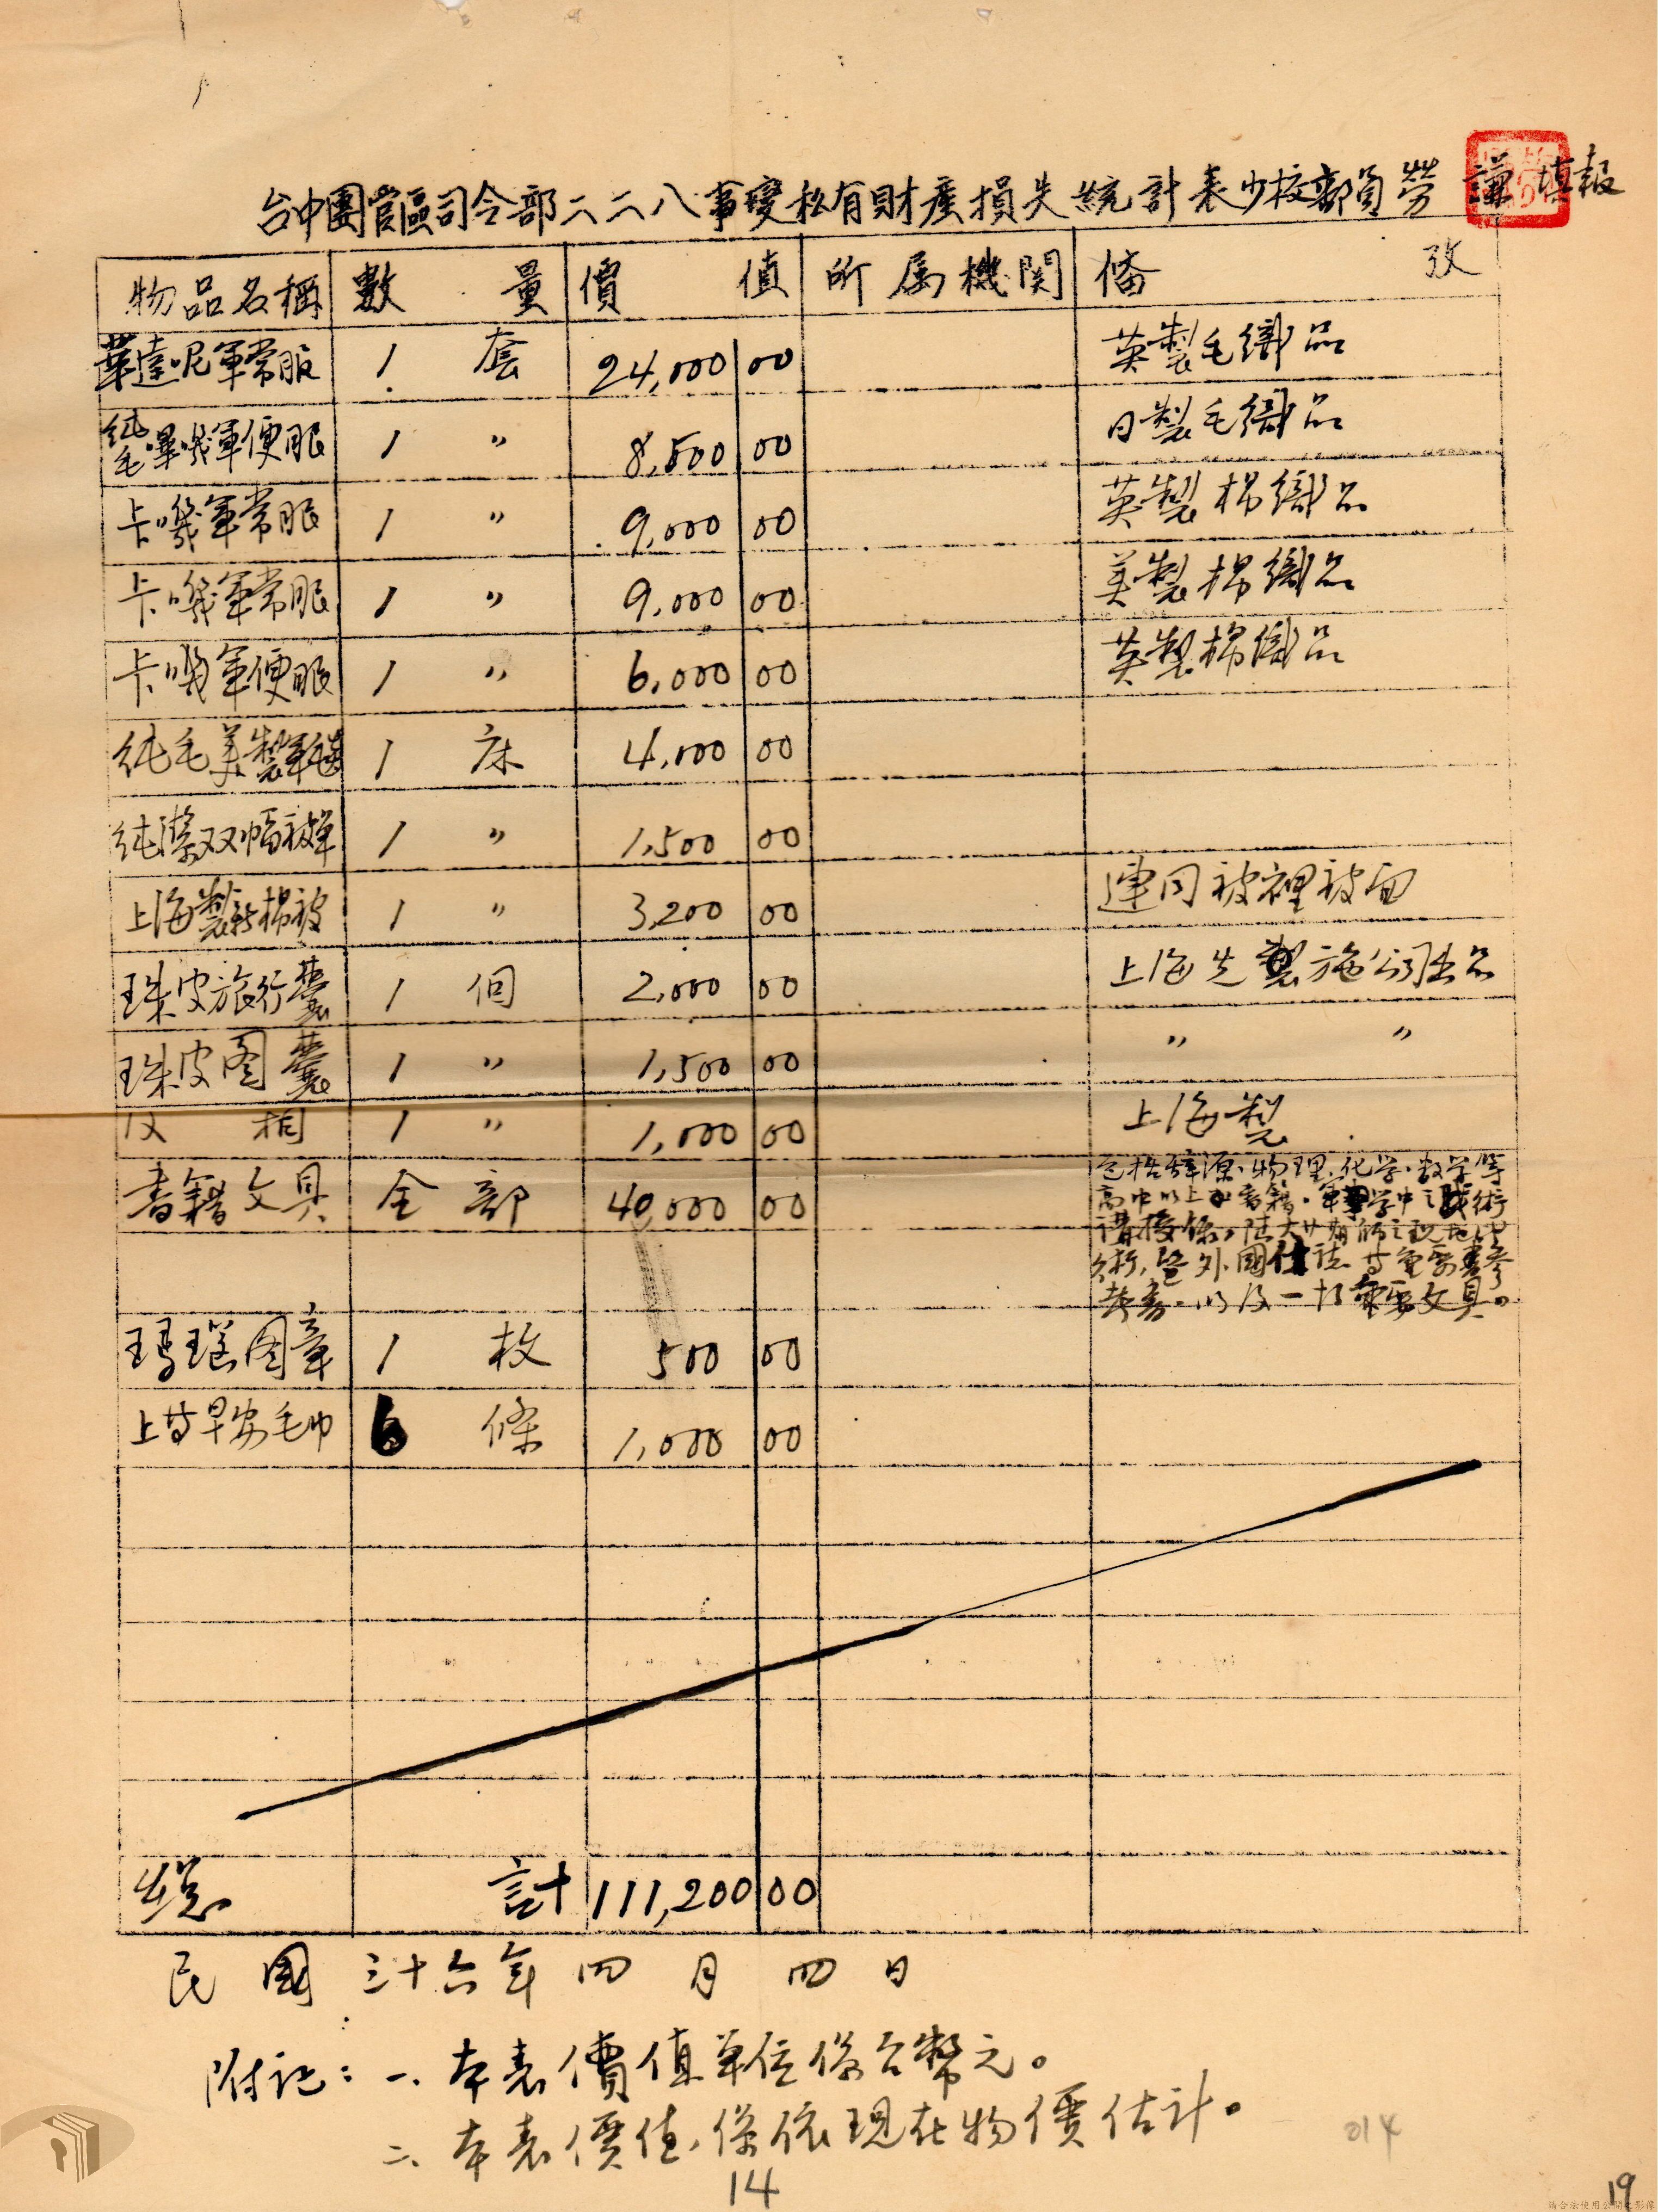 台中團管區司令部二二八事變私有財產損失統計表少校部員勞謙填報
物品名稱 數量 價值 所屬機関 備攷
華達呢軍常服 1 套 24,000 00 英製毛織品
純毛嗶嘰軍便服 1 〃 8,500 00 日製毛織品
卡嘰軍常服 1 〃 9,000 00 英製棉織品
卡嘰軍常服 1 〃 9,000 00 美製棉織品
卡嘰軍便服 1 〃 6,000 00 英製棉織品
純毛美製軍毯 1 床 4,000 00
純潔双幅被单 1 〃 1,500 00
上海製新棉被 1 〃 3,200 00 連同被裡被面
珠皮旅行囊 1 個 2,000 00 上海先施公司出品
珠皮图囊 1 〃 1,500 00 〃 〃
皮箱 1 〃 1,000 00 上海製
書籍文具 全部 40,000 00 包括辞源、物理、化学、数学等
高中以上書籍、軍事学中之戰術
瑪瑙图章 1 枚 500 00
上等毛巾 6 條 1,000 00
總計 111,200 00
民國三十六年四月四日
附記：一、本表價值單位係台幣元。
二、本表價值，係依現在物價估計。
014
14
19
請合法使用公開之影像